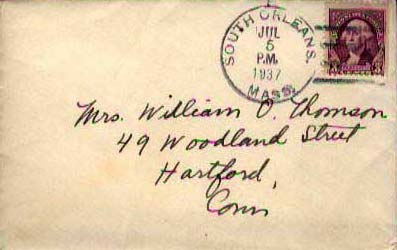 SOUTH ORLEANS,
JUL
5
P.M.
1937
MASS.
Mrs. William O. Thomson
49 Woodland Street
Hartford,
Conn